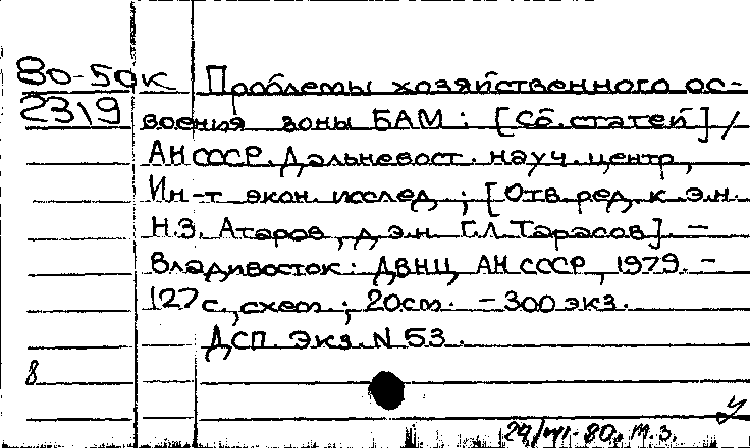 80-50к Проблемы хозяйственного ос-
2319 воения зоны БАМ: [Сб. статей] /
АН СССР. Дальневост. науч. центр,
Ин-т экон. исслед.; [Отв. ред. к.э.н.
Н.З. Атаров, д.э.н. Г.Л. Тарасов]. -
Владивосток: ДВНЦ АН СССР, 1979. -
127 с., схем.; 20 см. - 300 экз.
ДСП. Экз. N 53.
8
29/VII-80. м.з.